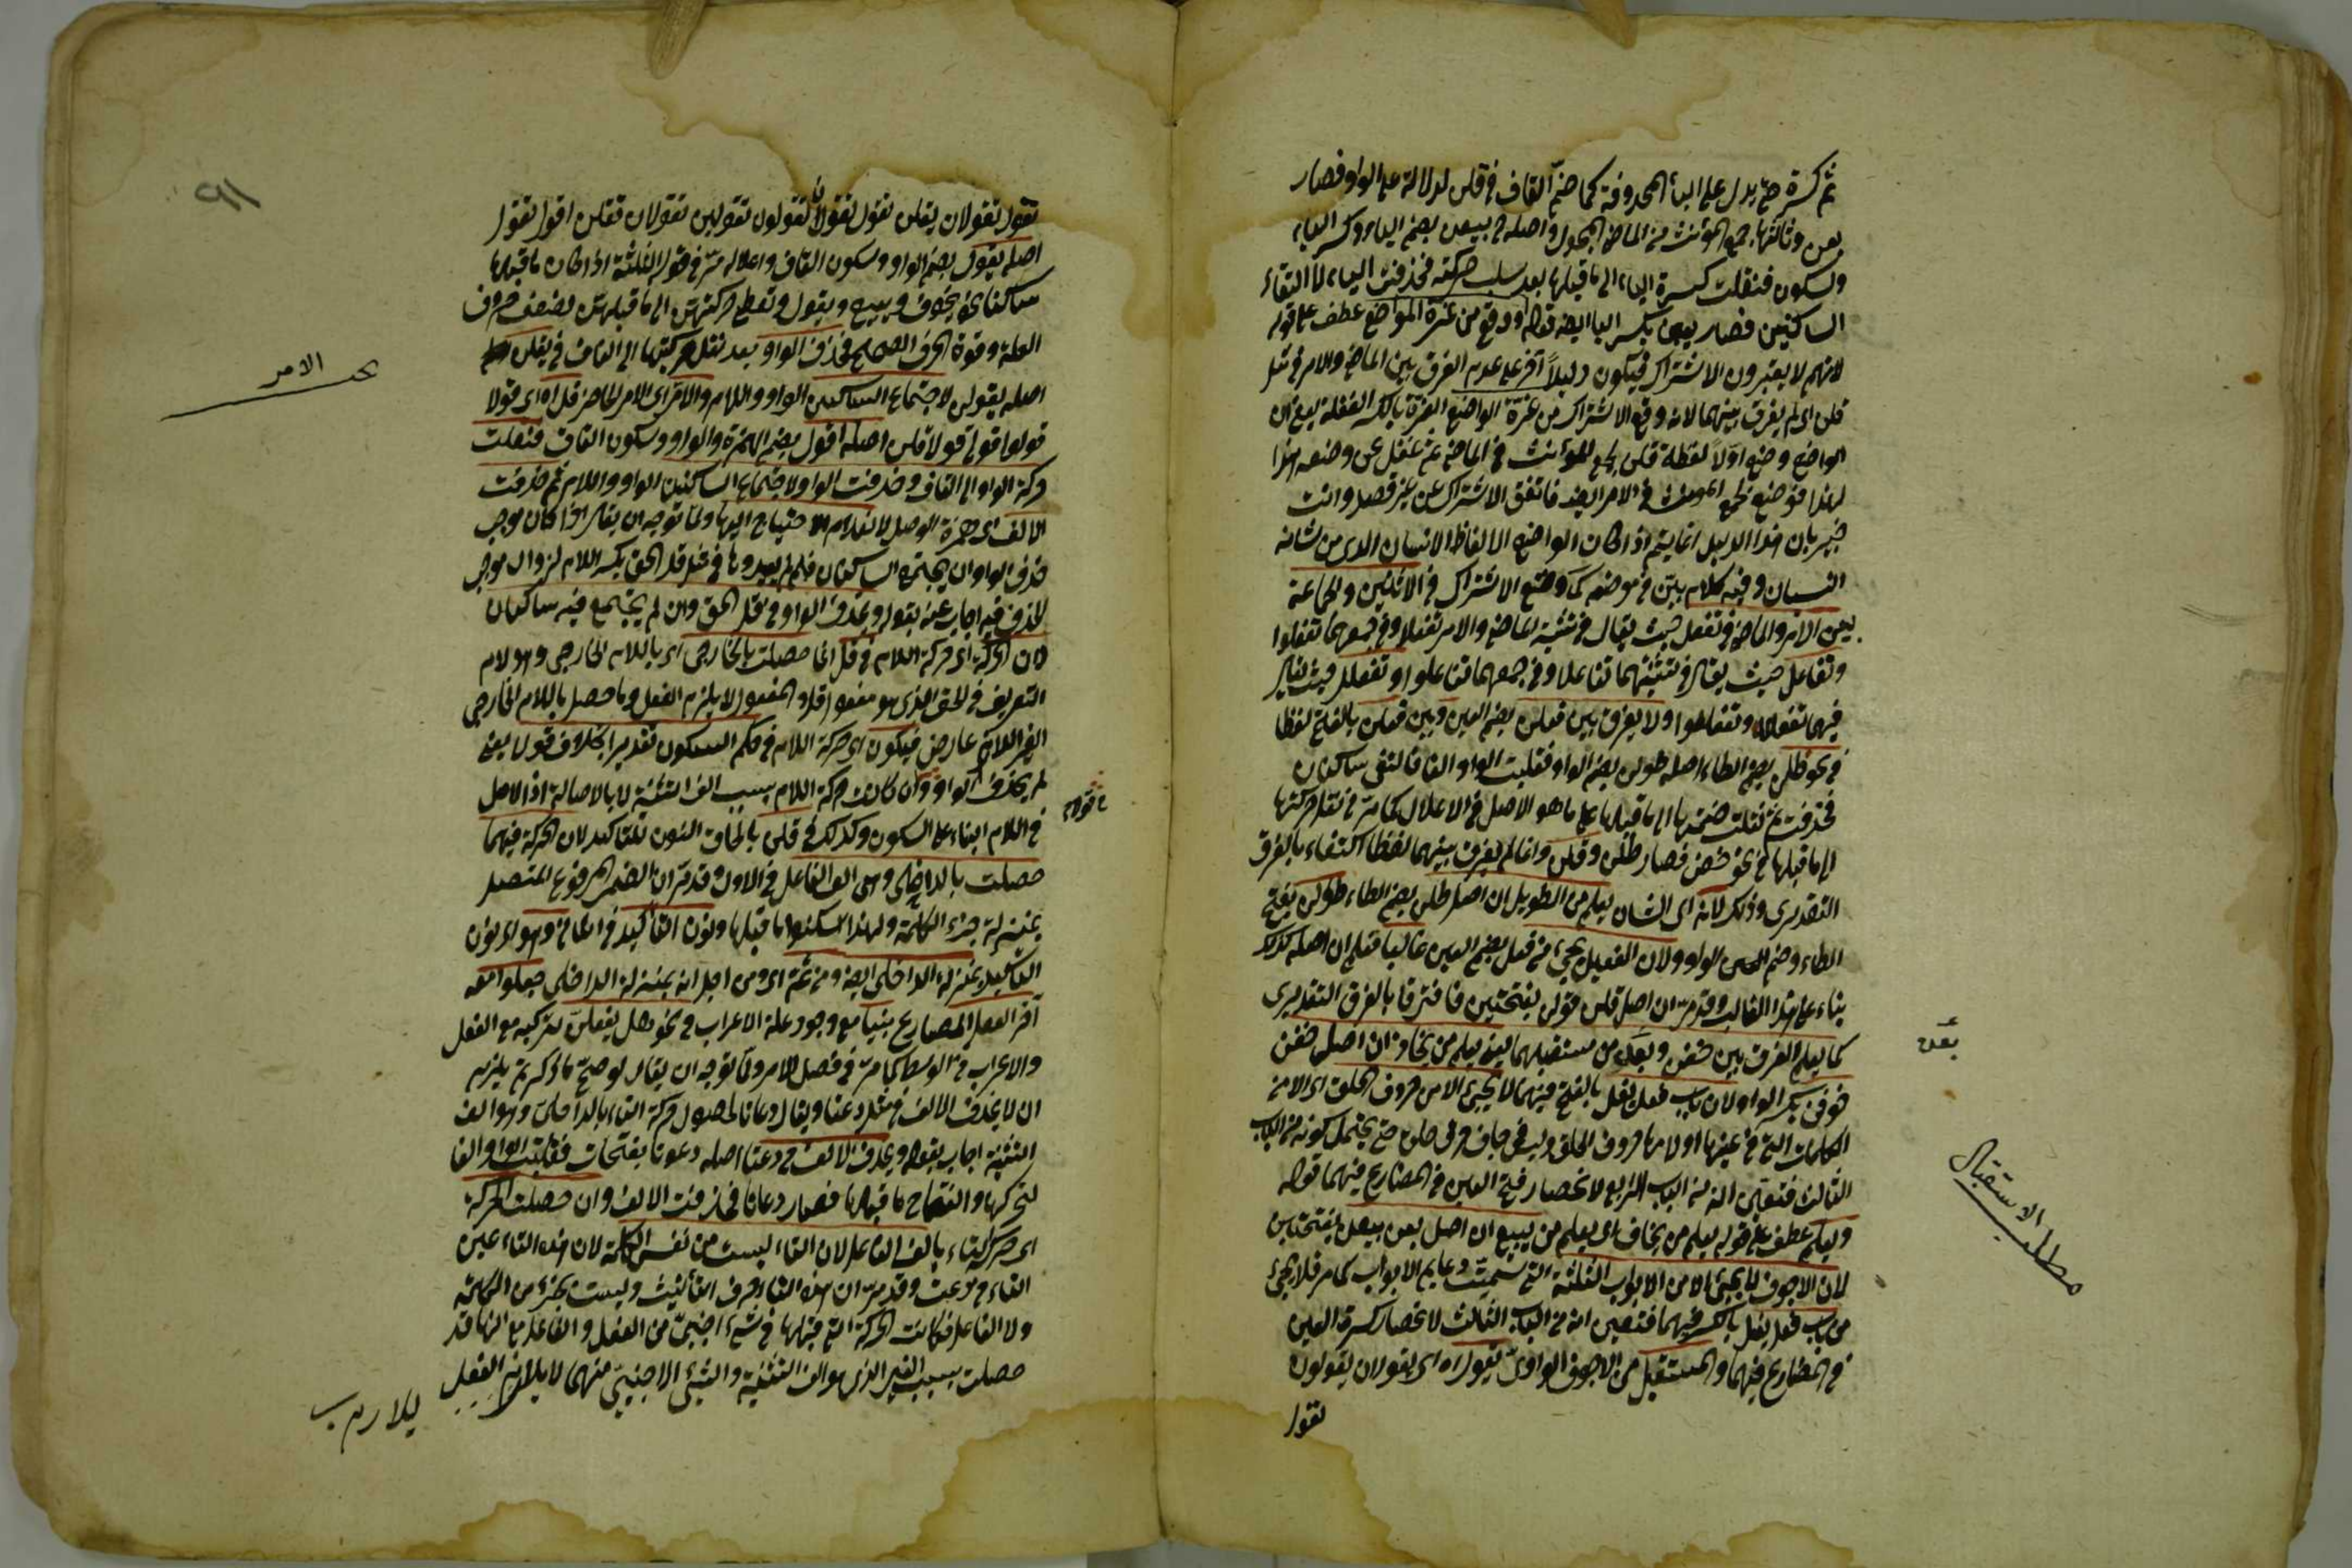 ثم كسرة حتى يدل على الياء المحذوفة كما ضم القاف في قلن لدلالة على الواو فصار
بعن وثالثها جمع المؤنث من الماضي المجهول واصله ح بيعن بضم الياء وكسر الياء
وسكون فنقلت كسرة الياء الى ما قبلها بعد سلب حركته فحذفت الياء لالتقاء
الساكنين فصار بعن بكسر الباء ايضا قوله او وقع من غرة المواضع عطف على قوله
لانهم لا يعتبرون الاشتراك فيكون دليلا آخر على عدم الفرق بين الماضي والامر في مثل
قلن اى لم يفرق بينهما لانه وقع الاشتراك من غرة الواضع الغرة بالكسر الغفلة يعنى ان
الواضع وضع اولا لفظة قلن لجمع المؤنث في الماضي ثم غفل عن وضعه هذا
لهذا فوضع لجمع المؤنث في الامر ايضا فاتفق الاشتراك عن غير قصد وانت
خبير بان هذا الدليل انما يتم اذا كان الواضع الالفاظ الانسان الذى من شانه
النسيان وفيه كلام بين في موضعه كما وضع الاشتراك في الاثنين والجماعة
يعنى الامر والماضي في تفعل حيث يقال في تثنية الماضي والامر تفعلا وفي جمعهما تفعلوا
وتفاعل حيث يقال في تثنيتهما تفاعلا وفي جمعهما تفاعلوا وتفعلل حيث يقال
فيهما تفعللا وتفعللوا ولا يفرق بين فعلن بضم العين وبين فعلن بالفتح لفظا
في نحو طلن بضم الطاء اصله طولن بضم الواو فقلبت الواو الفا فالتقى ساكنان
فحذفت ثم نقلت ضمتها الى ما قبلها على ما هو الاصل في الاعلال كما مر في نقل حركتها
الى ما قبلها في نحو خفن فصار طلن وقلن وانما لم يفرق بينهما لفظا اكتفاء بالفرق
التقديرى وذلك لانه اى الشان يعلم من الطويل ان اصل طلن بضم الطاء طولن بفتح
الطاء وضم الواو ولان الفعيل يجئ من فعل بضم العين غالبا فعلم ان اصله كذلك
بناء على هذا الغالب وقد مر ان اصل قلن قولن بفتحتين فافترقا بالفرق التقديرى
كما يعلم الفرق بين خفن وبعن من مستقبلهما يعنى يعلم من يخاف ان اصل خفن
خوفن بكسر الواو لان باب فعل يفعل بالفتح فيهما لا يجئ الا من حروف الحلق اى الا من
الكلمات التى في عينها او لامها حروف الحلق وليس في خاف حرف حلق حتى يحتمل كونه من الباب
الثالث فتعين انه من الباب الرابع لانحصار فتح العين في المضارع فيهما قوله
ويعلم عطف على قوله يعلم من يخاف اى يعلم من يبيع ان اصل بعن بيعن بفتحتين
لان الاجوف لا يجئ الا من الابواب الثلثة التى سميت دعايم الابواب كما مر فلا يجئ
من باب فعل يفعل بالكسر فيهما فتعين انه من الباب الثالث لانحصار كسرة العين
في المضارع فيهما والمستقبل من الاجوف الواوى يقول اه اى يقولان يقولون
تقول
بعن
مطلب الاستقبال
٩١
تقول تقولان يقلن تقول تقولان تقولون تقولين تقولان تقلن اقول نقول
اصله يقول بضم الواو وسكون القاف واعلاله مر في قوله الثلثة اذا كان ما قبلها
ساكنا نحو يخوف ويبيع ويقول وتعطى حركتهن الى ما قبلهن لضعف حروف
العلة وقوة الحرف الصحيح فحذف الواو بعد نقل حركتها الى القاف في يقلن
اصله يقولن لاجتماع الساكنين الواو واللام والامر اى الامر الحاضر قل اه اى قولا
قولوا قولى قولا قلن اصله اقول بضم الهمزة والواو وسكون القاف فنقلت
حركة الواو الى القاف وحذفت الواو لاجتماع الساكنين الواو واللام ثم حذفت
الالف اى همزة الوصل لانعدام الاحتياج اليها ولما توجه ان يقال اذا كان موجب
حذف الواو ان يجتمع الساكنان فلم لم يعيدوها في مثل قل الحق بكسر اللام لزوال موجب
الحذف فيه اجاب عنه بقوله وتحذف الواو في قل الحق وان لم يجتمع فيه ساكنان
لان الحركة اى حركة اللام في قل انما حصلت بالخارجى اى باللام الخارجى وهو لام
التعريف في الحق الذى هو مفعول قل والمفعول لا يلزم الفعل وما حصل باللام الخارجى
الغير اللازم عارض فيكون اى حركة اللام في حكم السكون تقديرا بخلاف قولا يعنى
لم يحذف الواو وان كانت حركة اللام بسبب الف التثنية لا بالاصالة اذ الاصل
في اللام البناء على السكون وكذلك في قلن بالحاق النون للتاكيد لان الحركة فيهما
حصلت بالداخلى وهى الف الفاعل في الاول وقد مر ان الضمير المرفوع المتصل
بمنزلة جزء الكلمة ولهذا اسكنوا ما قبلها ونون التأكيد في الثانى وهو اى نون
التأكيد بمنزلة الداخلى ايضا ومن ثم اى ومن اجل انه بمنزلة الداخلى جعلوا معه
آخر الفعل المضارع مبنيا مع وجود علة الاعراب في نحو هل يفعلن بتركيبه مع الفعل
والاعراب في الوسط كما مر في فصل الامر ولما توجه ان يقال لو صح ما ذكرتم يلزم
ان لا يحذف الالف في مثل دعتا ويقال دعاتا لحصول حركة التاء بالداخلى وهو الف
التثنية اجاب بقوله وتحذف الالف في دعتا اصله دعوتا بفتحات فقلبت الواو الفا
لتحركها وانفتاح ما قبلها فصار دعاتا فحذفت الالف وان حصلت الحركة
اى حركة التاء بالف الفاعل لان التاء ليست من نفس الكلمة لان هذه التاء عين
التاء في دعت وقد مر ان هذه التاء حرف التأنيث وليست بجزء من الكلمة
ولا الفاعل فكانت الحركة التى قبلها في شئ اجنبى من الفعل والفاعل مع انها قد
حصلت بسبب الغير الذى هو الف التثنية والشئ الاجنبى منهما لا يلازم الفعل
الامر